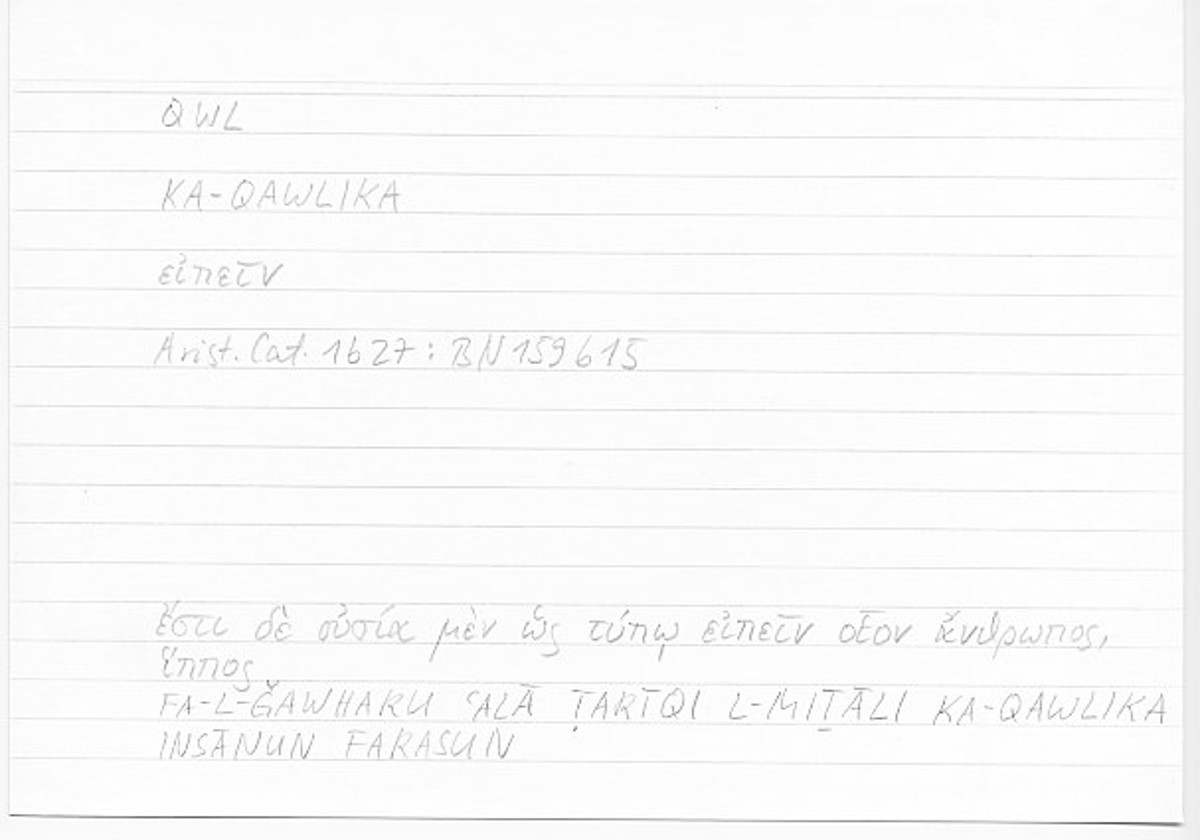 QWL
KA-QAWLIKA
εἰπεῖν
Arist. Cat. 1b27: BN 159b15
ἔστι δὲ οὐσία μὲν ὡς τύπῳ εἰπεῖν οἷον ἄνθρωπος,
ἵππος
FA-L-ǦAWHARU ʿALĀ ṬARĪQI L-MIṮĀLI KA-QAWLIKA
INSĀNUN FARASUN